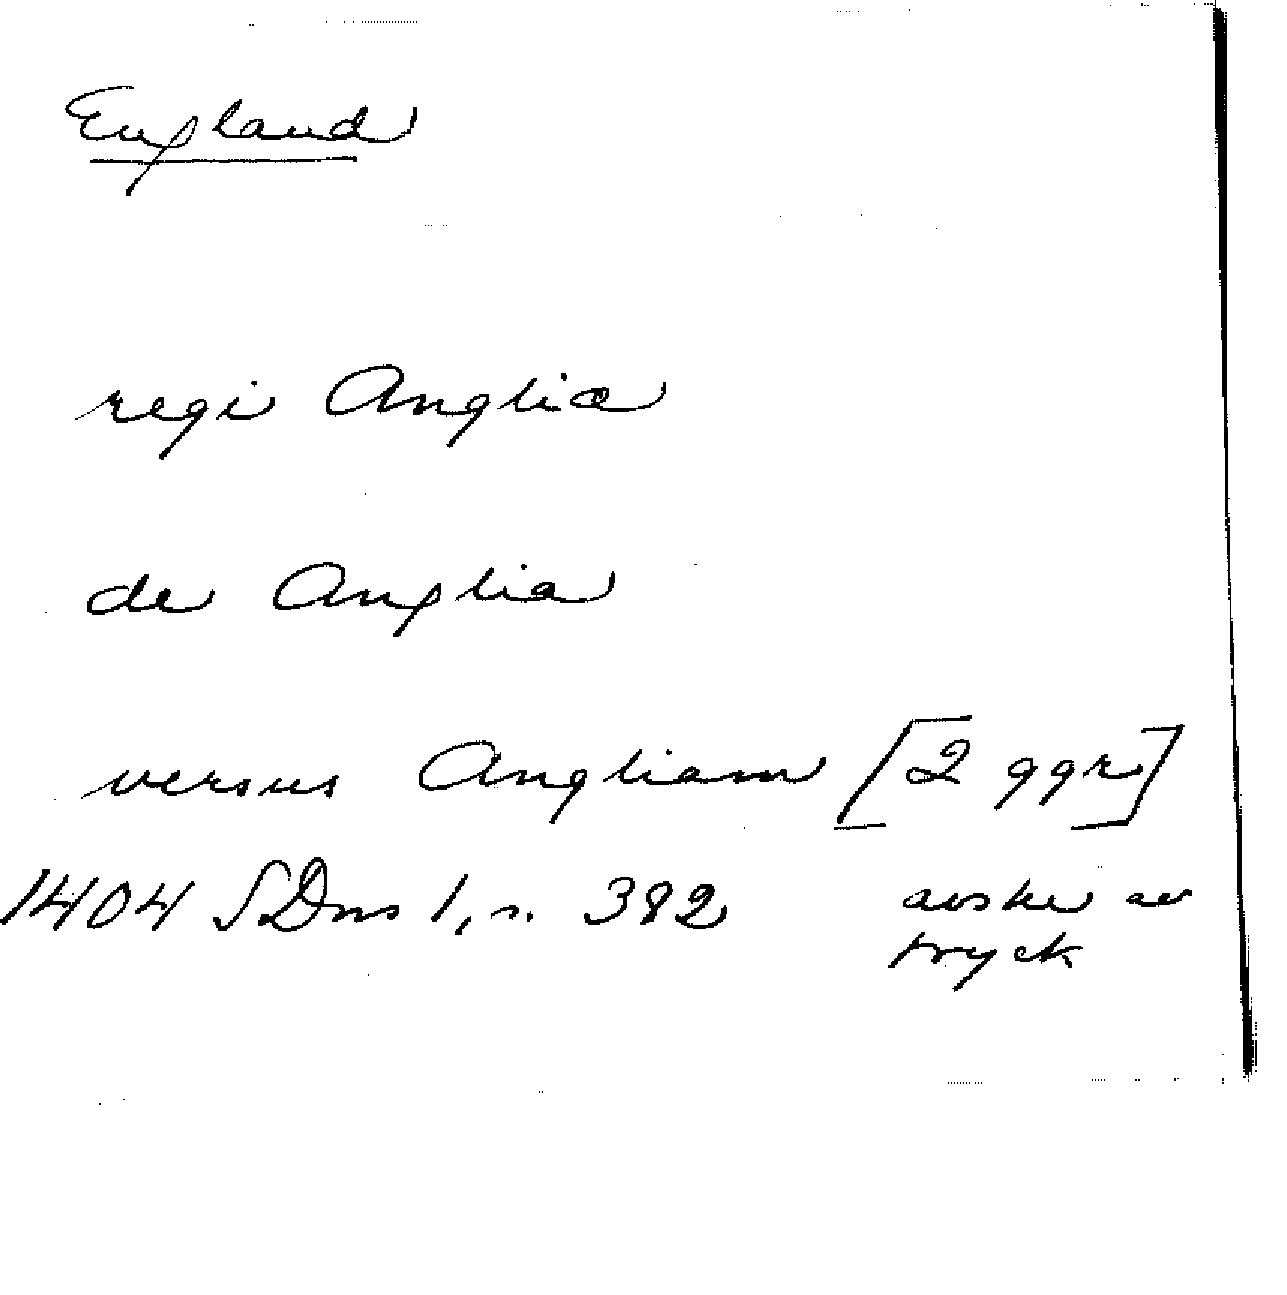 England
regi Anglie
de Anglia
versus Angliam [2 ggr]
1404 SDns 1, s. 382 avskr av
tryck